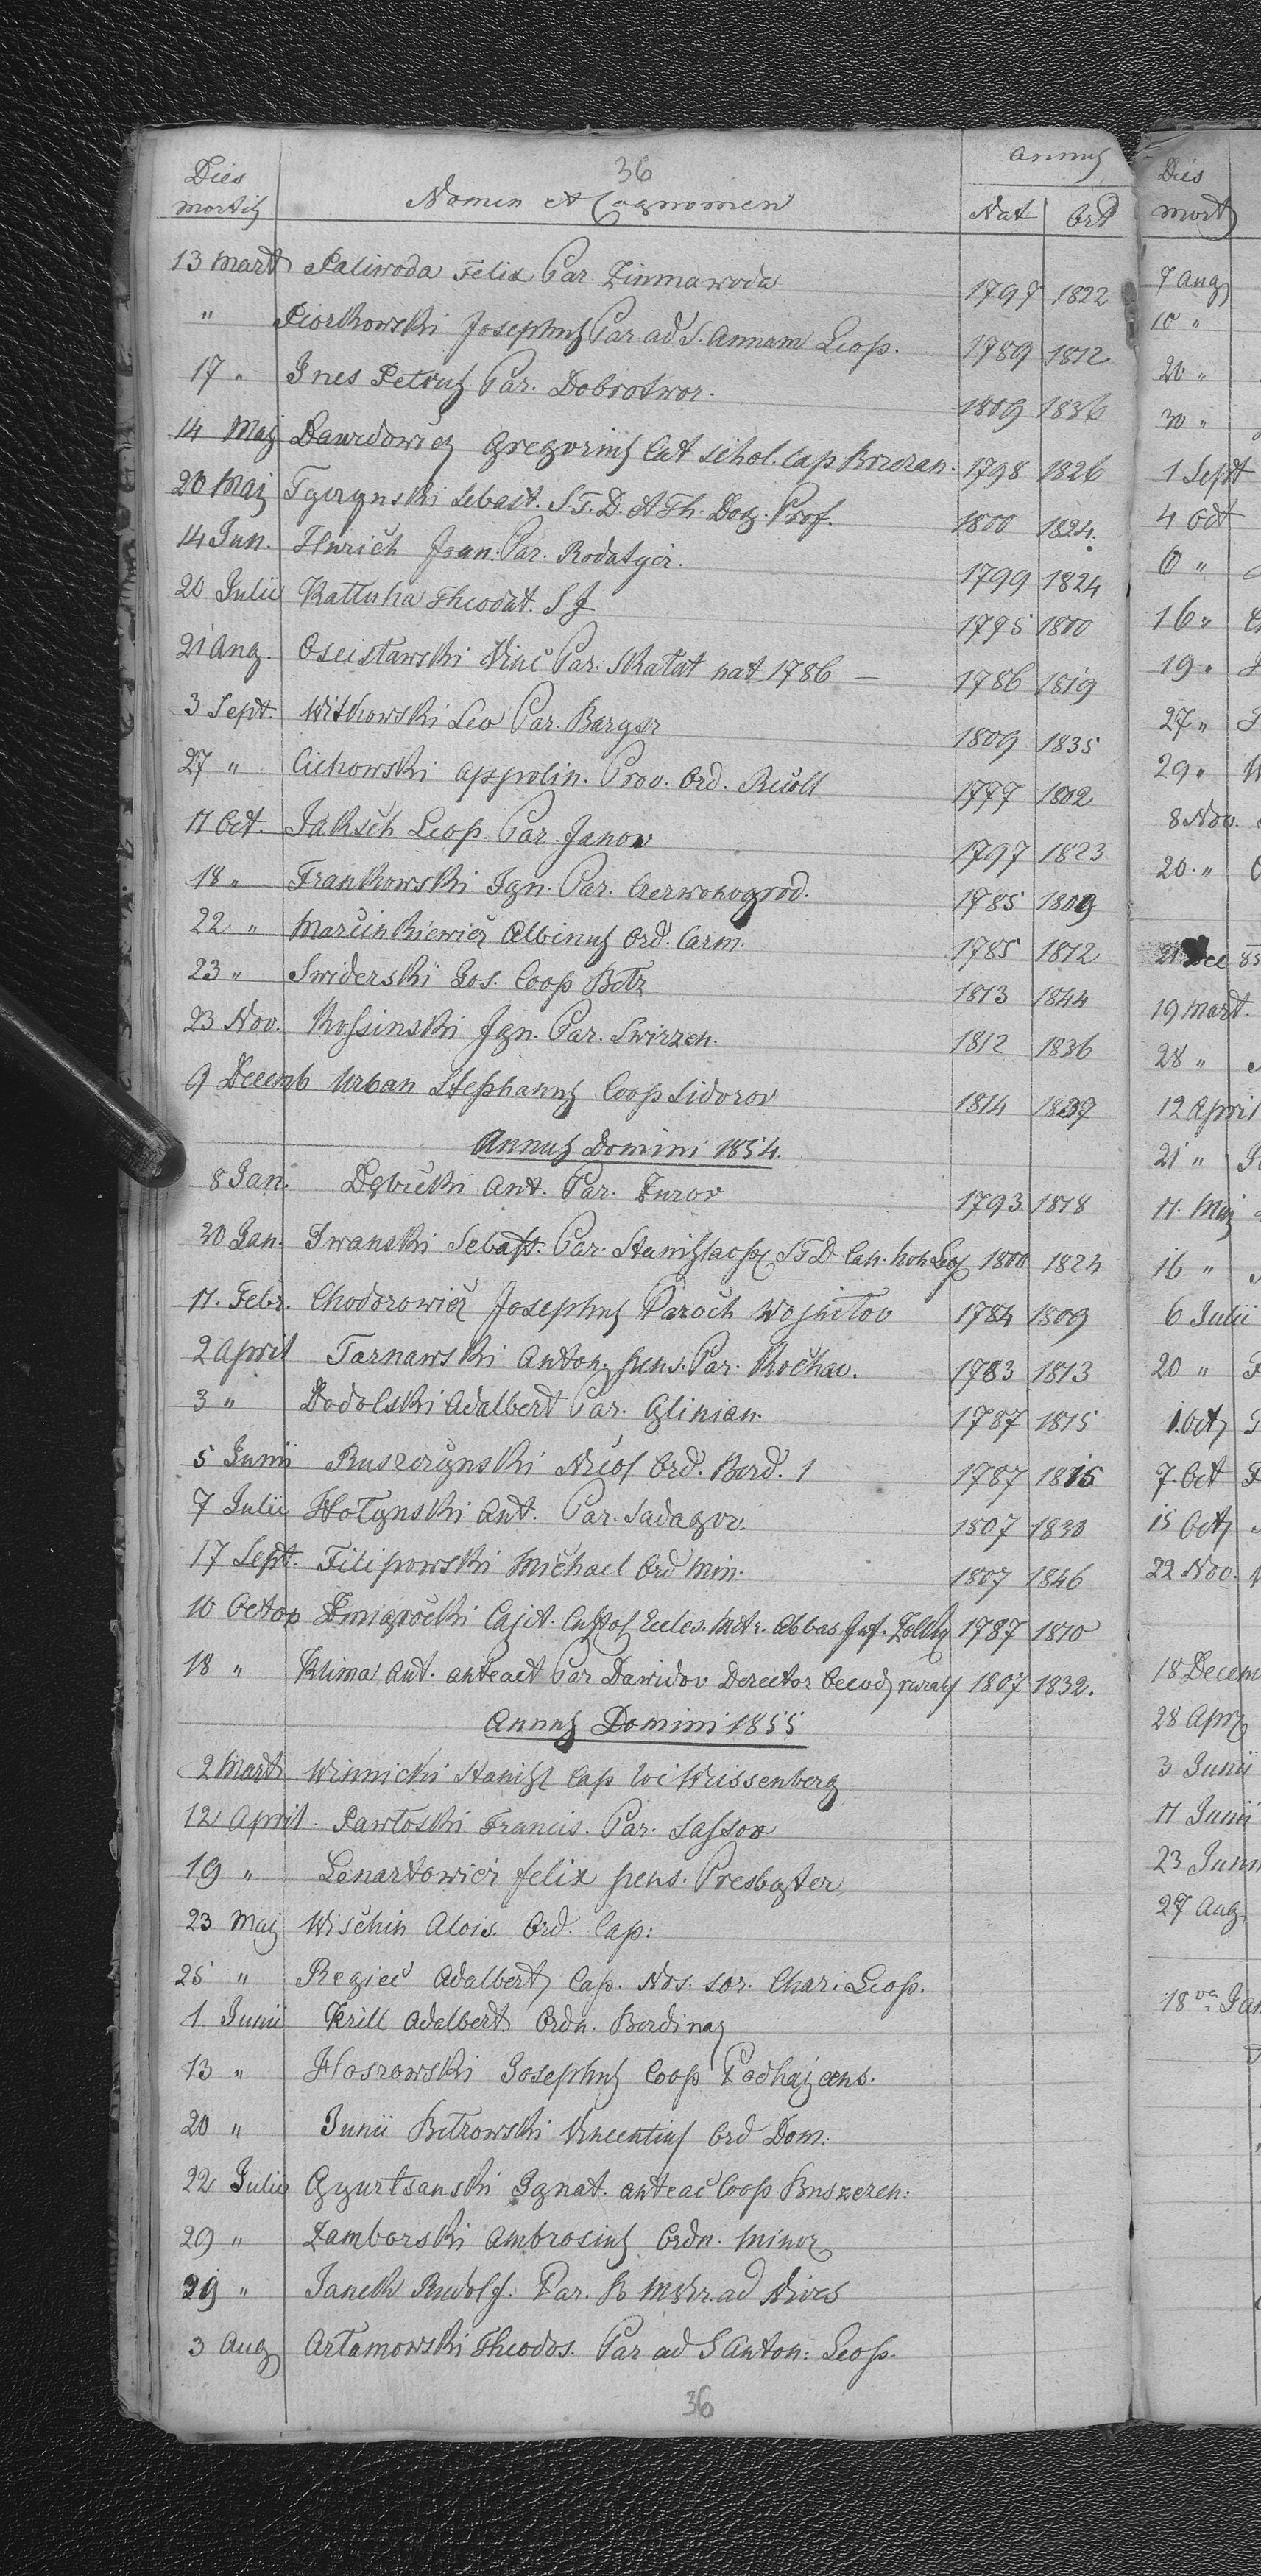 36
Dies mortis Nomen et Cognomen Annus Nat Ord
13 Mart Paliwoda Felix Par. Zimnawoda 1797 1822
" Piorkowski Josephus Par. ad S. Annam Leop. 1789 1812
17 " Ines Petrus Par. Dobrotwor. 1809 1836
14 Maj Dawidowicz Gregorius Cat schol. Cap Brzezan. 1798 1826
20 Maj Tyczynski Sebast. S.T.D. et Th. Dog. Prof. 1800 1824.
14 Jun. Hurich Joan. Par. Rodatycz. 1799 1824
20 Julii Kattuha Theodat. S J 1795 1800
21 Aug. Oscisławski Vinc Par. Skałat nat 1786 — 1786 1819
3 Sept. Witkowski Leo Par. Barysz 1809 1835
27 " Cichowski Appolin. Prov. Ord. Recoll 1777 1802
11 Oct. Jaksch Leop. Par. Janow 1797 1823
18 " Frankowski Ign. Par. Czerwonogrod. 1785 1809
22 " Marcinkiewicz Albinus Ord. Carm. 1785 1812
23 " Swiderski Jos. Coop Bełz 1813 1844
23 Nov. Kossinski Ign. Par. Swirzen. 1812 1836
9 Decemb Urban Stephanus Coop Sidorov 1814 1839
Annus Domini 1854.
8 Jan. Dębicki Ant. Par. Zurov 1793 1818
30 Jan. Iwanski Sebast. Par. Stanislaop S T D Can. hon Leop 1800 1824
11. Febr. Chodorowicz Josephus Paroch Wojnilov 1784 1809
2 April Tarnawski Anton. pens. Par. Kochav. 1783 1813
3 " Dodolski Adalbert Par. Glinian. 1787 1815
5 Junii Ruszczynski Nicol Ord. Berd. 1787 1815
7 Julii Hołynski Ant. Par. Sadagor. 1807 1830
17 Sept. Filipowski Michael Ord Min. 1807 1846
10 Octob Zmigrocki Cajet. Custos Eccles. Metr. Abbas Inf. Zolkiw 1787 1810
18 " Klima Ant. anteact Par Dawidov Derector Oecod ruralis 1807 1832.
Annus Domini 1855
2 Mart Winnicki Stanisl Cap loc Weissenberg
12 April. Pawłoski Francis. Par. Sassov
19 " Lenartowicz Felix pens. Presbyter
23 Maij Wischin Alois. Ord. Cap:
25 " Regiec Adalbert Cap. Nos. sor. Char. Leop.
1 Junii Krill Adalbert Ordn. Berdinas
13 " Hoszowski Josephus Coop Podhajcens.
20 " Junii Bitrowski Vincentius Ord Dom:
22 Julii Gyurtsanski Ignat. anteac Coop Buszczen:
29 " Zamborski Ambrosius Ordn. Minor
29 " Janek Rudolf. Par. B M Vir. ad Nives
3 Aug Artamowski Theodos. Par ad S Anton: Leop.
36
Dies mort
7 Aug
10 "
20 "
30 "
1 Sept
4 Oct
6 "
16 "
19 "
27 "
29 "
8 Nov.
20. "
21 Dec
19 Mart.
28 "
12 April
21 "
11. Maj
16 "
6 Julii
20 "
1. Oct
7. Oct
15 Oct
22 Nov.
18 Decem
28 Apr
3 Junii
11 Junii
23 Juni
27 Aug
18va Jan